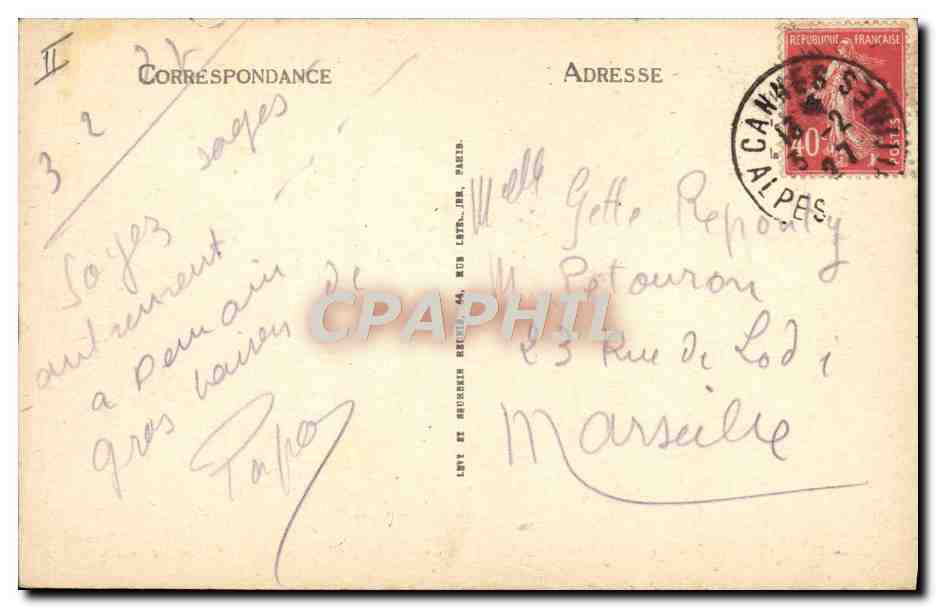 II
3 2 27
CORRESPONDANCE
sages
Soyez
autrement
a Demain
gros baisers de
Papa
LEVY ET NEURDEIN REUNIS, 44, RUE LETELLIER, PARIS.
ADRESSE
Melle Gette Repouty
M Petouron
23 Rue de Lodi
Marseille
REPUBLIQUE FRANCAISE
40
POSTES
CANNES
2
27
ALPES
CPAPHIL